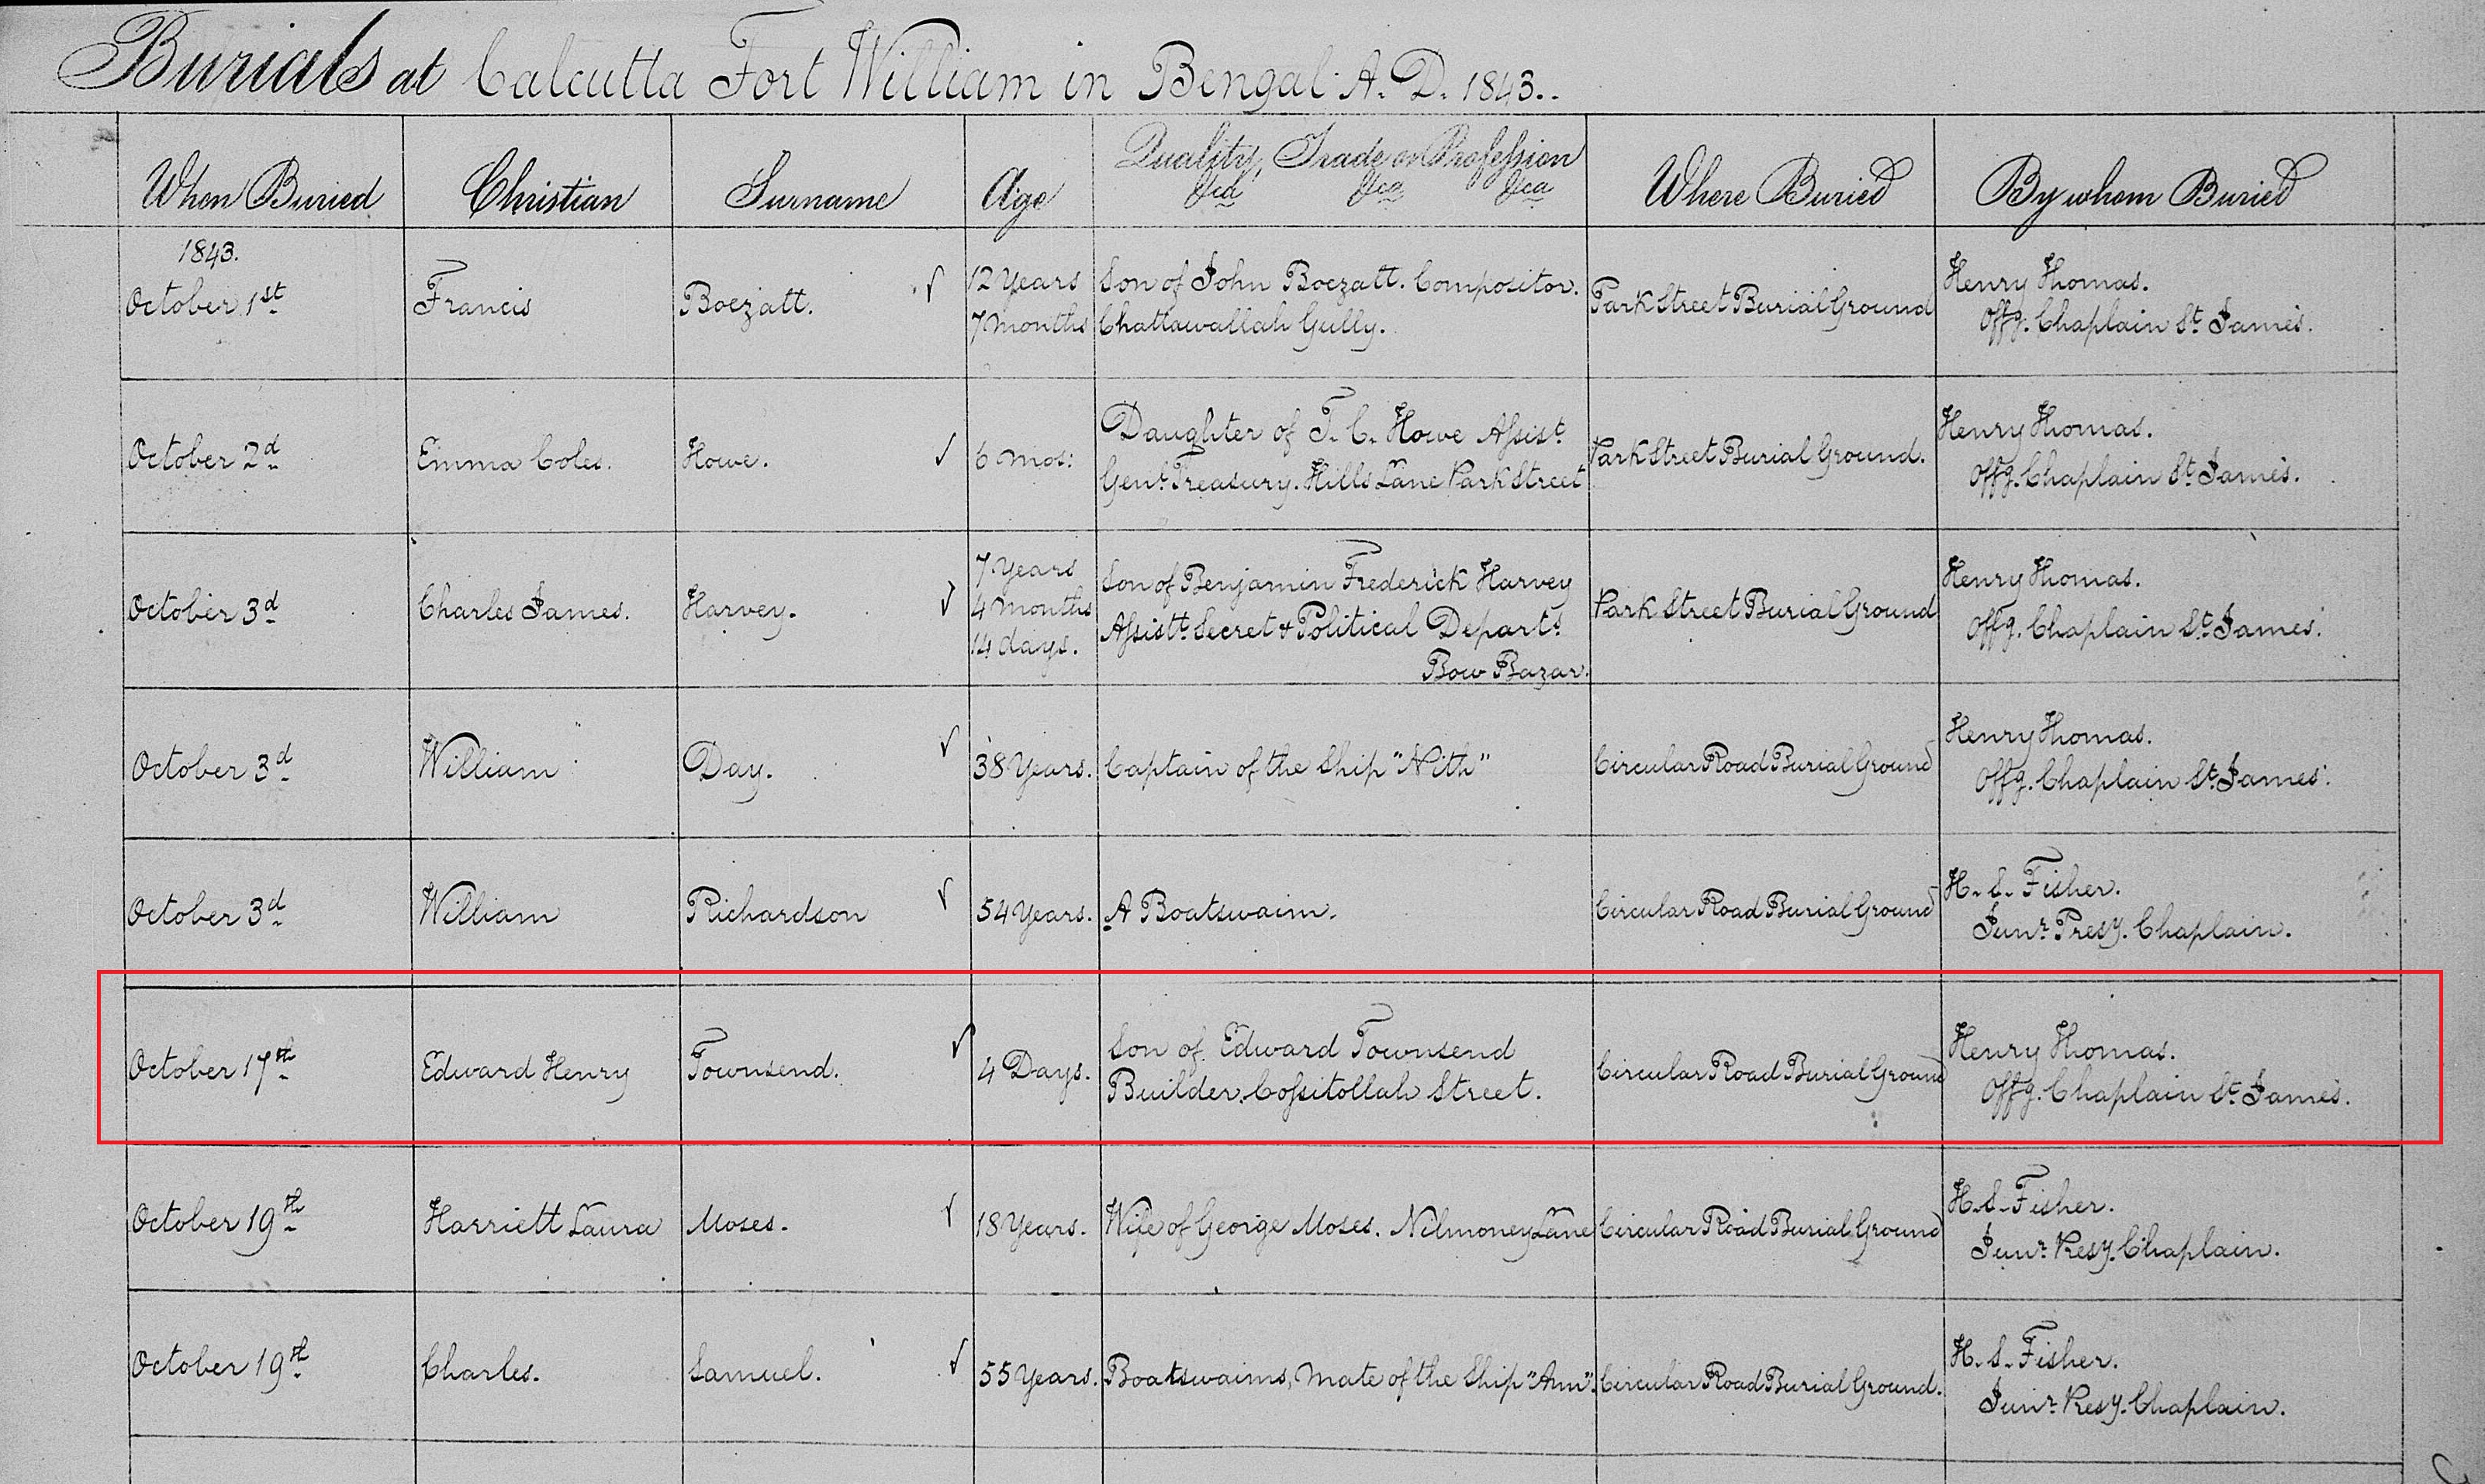 Burials at Calcutta Fort William in Bengal A. D. 1843..
When Buried Christian Surname Age Quality, Trade or Profession Where Buried By whom Buried
&ca &ca &ca
1843.
October 1st Francis Boezatt. 12 Years Son of John Boezatt. Compositor. Park Street Burial Ground Henry Thomas.
7 months Chattawallah Gully. Offg. Chaplain St. James.
October 2d Emma Coles. Howe. 6 mos: Daughter of T. C. Howe Assist. Park Street Burial Ground. Henry Thomas.
Genl. Treasury. Hills Lane Park Street Offg. Chaplain St. James.
October 3d Charles James. Harvey. 7 Years Son of Benjamin Frederick Harvey Park Street Burial Ground Henry Thomas.
4 months Assistt. Secret & Political Depart. Offg. Chaplain St. James.
14 days. Bow Bazar.
October 3d William Day. 38 Years. Captain of the Ship "Nith" Circular Road Burial Ground Henry Thomas.
Offg. Chaplain St. James.
October 3d William Richardson 54 Years. A Boatswaim. Circular Road Burial Ground H. S. Fisher.
Junr. Presy. Chaplain.
October 17th Edward Henry Townsend. 4 Days. Son of Edward Townsend Circular Road Burial Ground Henry Thomas.
Builder. Cossitollah Street. Offg. Chaplain St. James.
October 19th Harriett Laura Moses. 18 Years. Wife of George Moses. Nilmoney Lane Circular Road Burial Ground H. S. Fisher.
Junr. Presy. Chaplain.
October 19th Charles. Samuel. 55 Years. Boatswaims, Mate of the Ship "Ann". Circular Road Burial Ground. H. S. Fisher.
Junr. Presy. Chaplain.